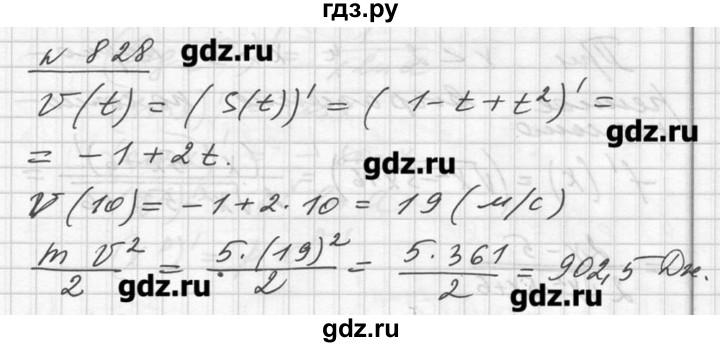 гдз.ру
N 828
gdz.ru
V(t) = (S(t))' = (1 - t + t²)' =
gdz.ru
= -1 + 2t.
gdz.ru
V(10) = -1 + 2·10 = 19 (м/с)
mv²/2 = 5·(19)²/2 = 5·361/2 = 902,5 Дж.
gdz.ru
gdz.ru
gdz.ru